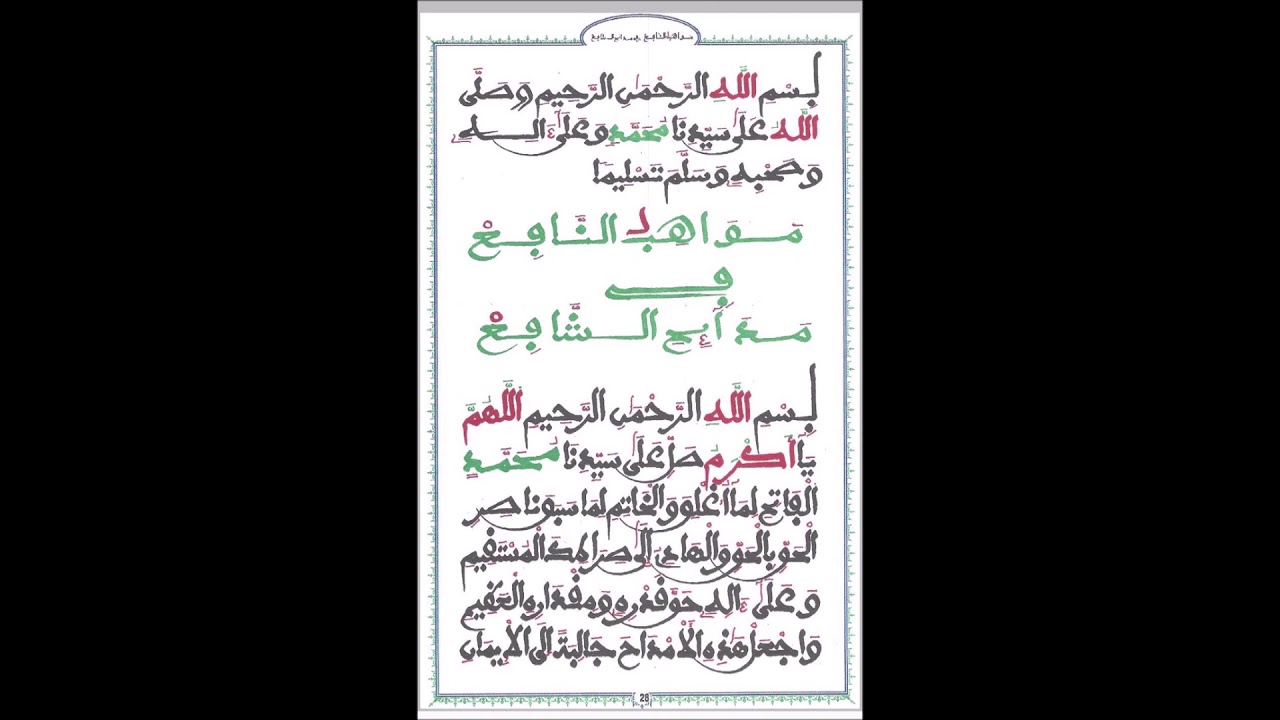 مواهب النافع في مدائح الشافع
بِسْمِ اللَّهِ الرَّحْمَٰنِ الرَّحِيمِ وَصَلَّى
اللَّهُ عَلَى سَيِّدِنَا مُحَمَّدٍ وَعَلَى ءَالِهِ
وَصَحْبِهِ وَسَلَّمَ تَسْلِيمًا
مَوَاهِبُ النَّافِعْ
فِي
مَدَائِحِ الشَّافِعْ
بِسْمِ اللَّهِ الرَّحْمَٰنِ الرَّحِيمِ اللَّهُمَّ
يَا أَكْرَمُ صَلِّ عَلَى سَيِّدِنَا مُحَمَّدٍ
الْفَاتِحِ لِمَا أُغْلِقَ وَالْخَاتِمِ لِمَا سَبَقَ نَاصِرِ
الْحَقِّ بِالْحَقِّ وَالْهَادِي إِلَى صِرَاطِكَ الْمُسْتَقِيمِ
وَعَلَى ءَالِهِ حَقَّ قَدْرِهِ وَمِقْدَارِهِ الْعَظِيمِ
وَاجْعَلْ هَٰذِهِ الْأَمْدَاحَ جَالِبَةً إِلَى الْإِيمَانِ
28